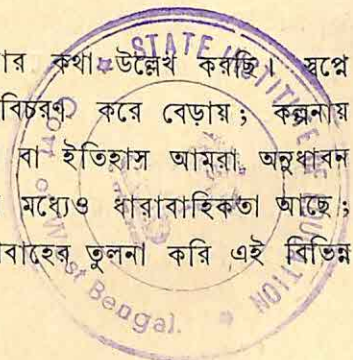 ার কথা উল্লেখ করছি। স্বপ্নে
বিচরণ করে বেড়ায়; কল্পনায়
বা ইতিহাস আমরা অনুধাবন
মধ্যেও ধারাবাহিকতা আছে;
বাহের তুলনা করি এই বিভিন্ন
STATE INSTITUTE OF EDUCATION
Govt. of West Bengal.